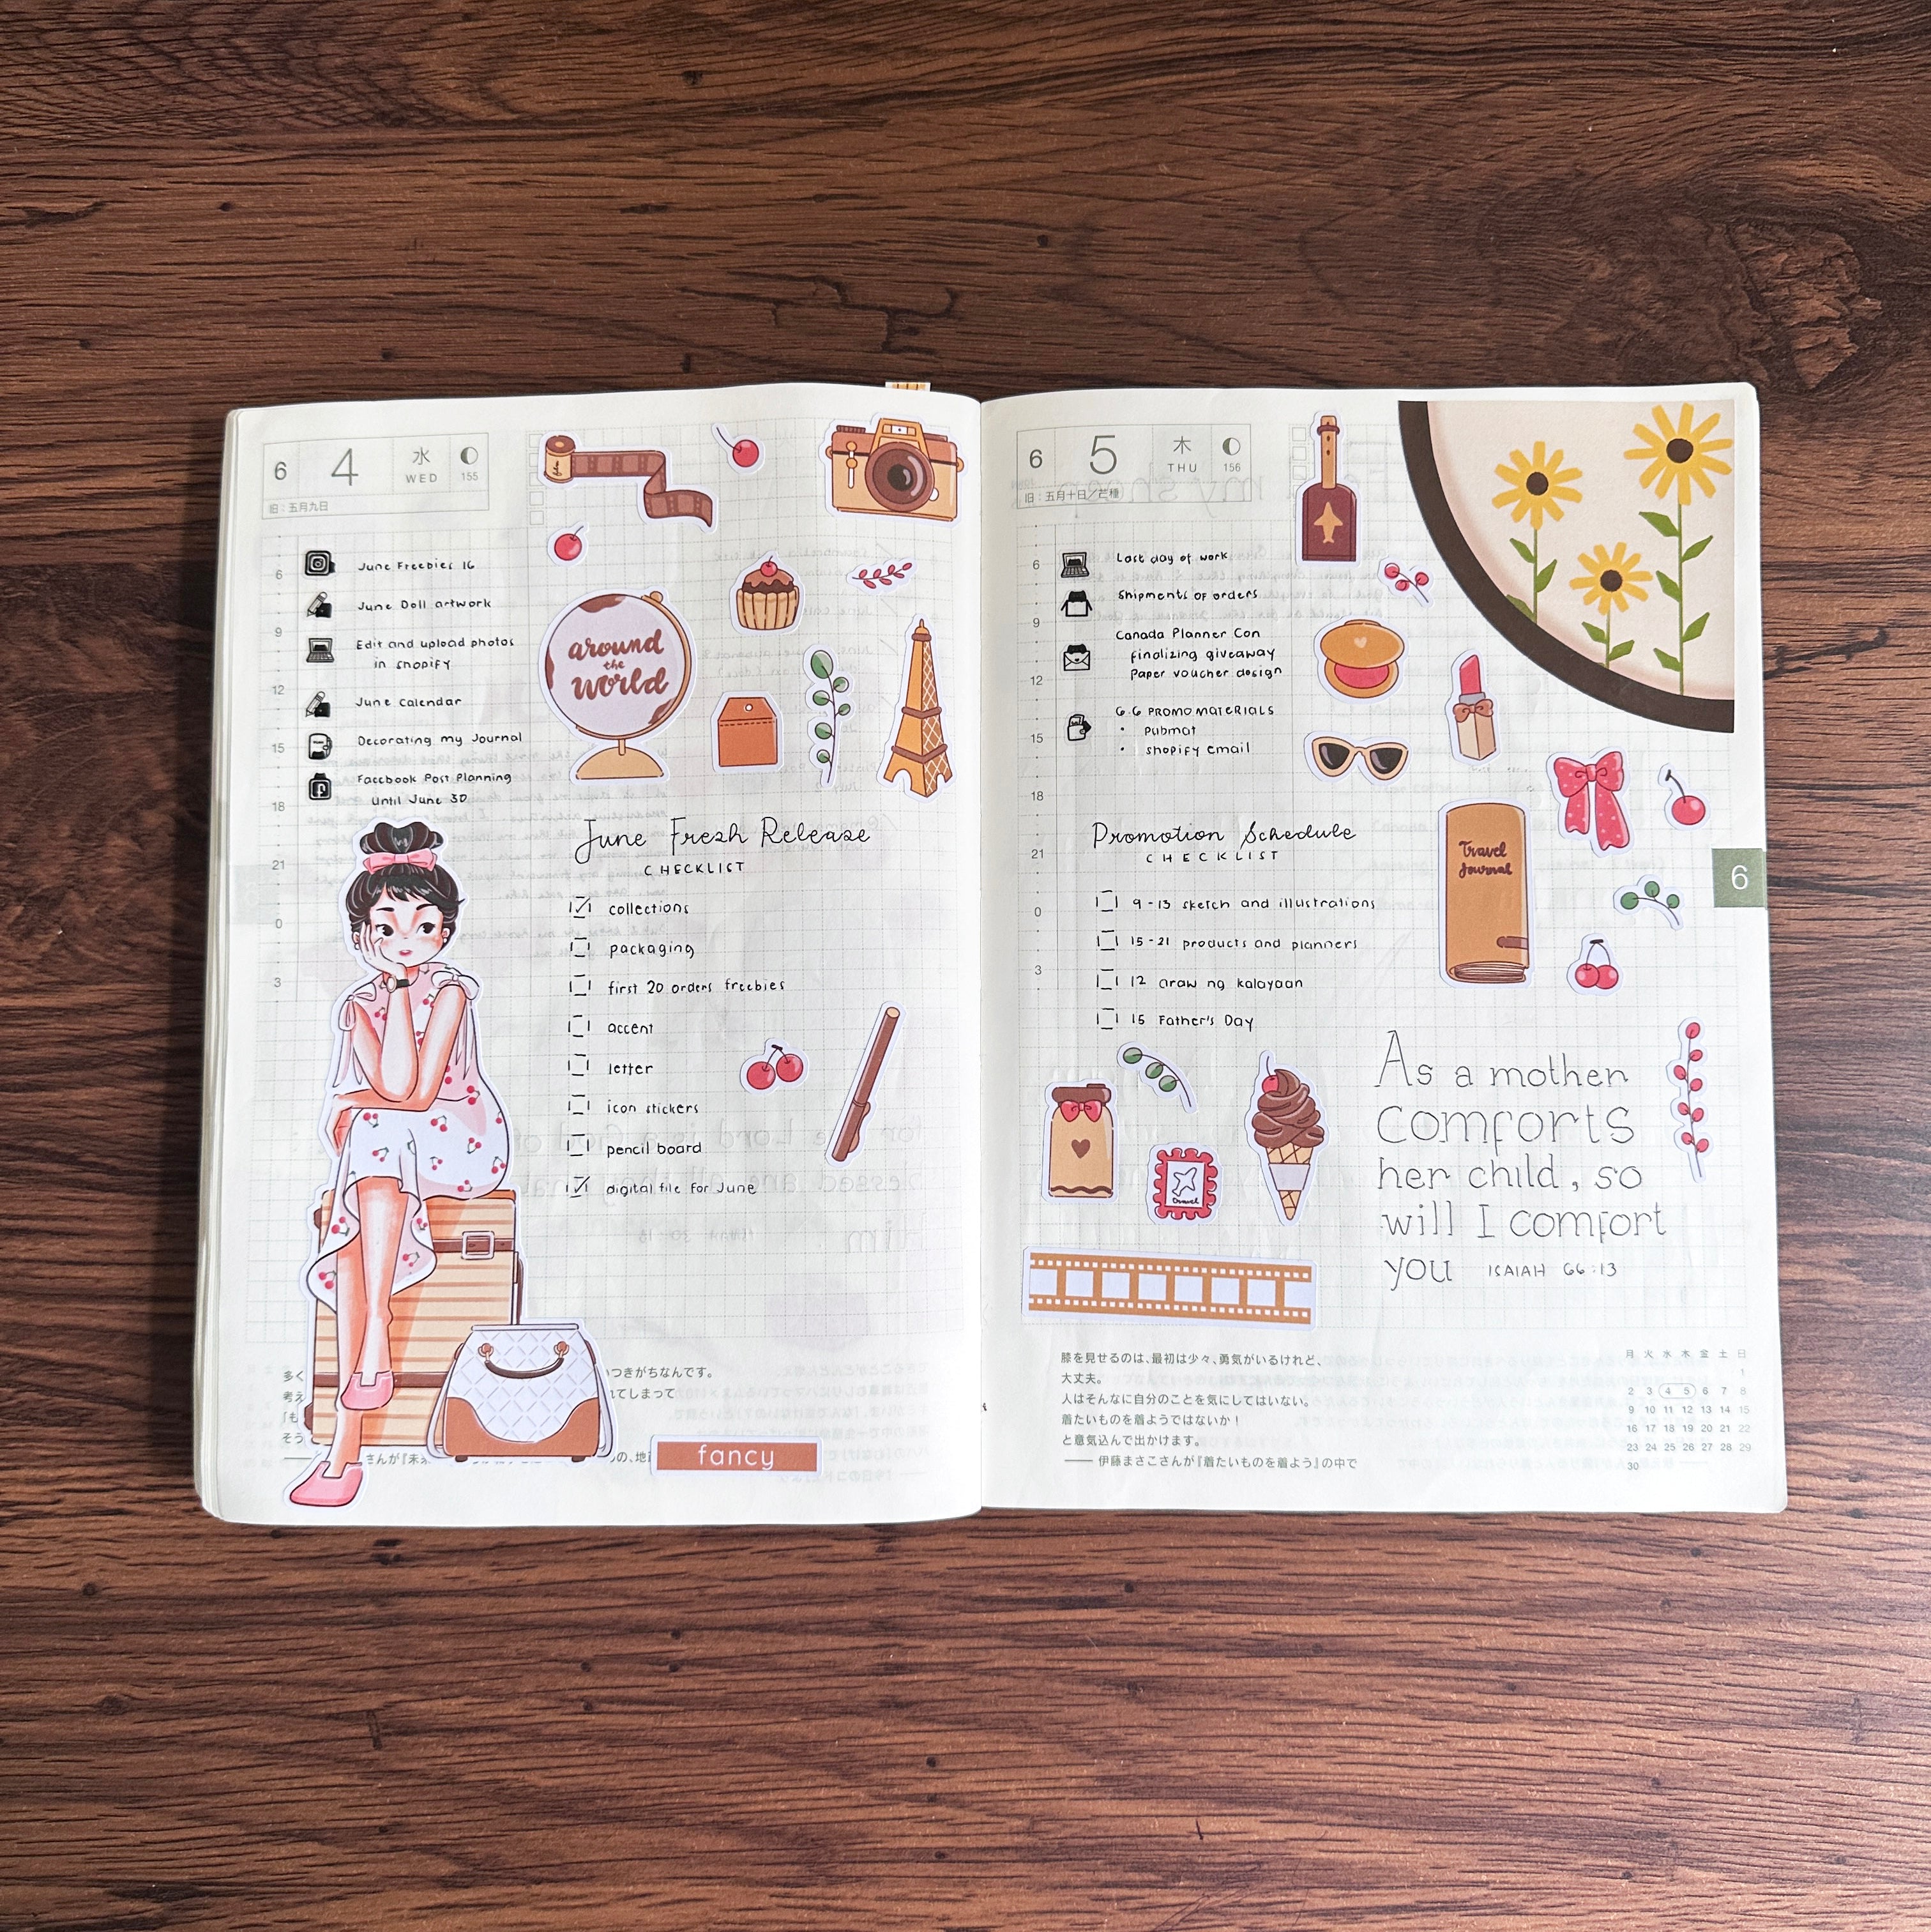 6 4 水 WED 155
旧：五月九日
film
June Freebies 16
June Doll artwork
Edit and upload photos
in shopify
June Calendar
Decorating my Journal
Facebook Post Planning
Until June 30
6
9
12
15
18
21
0
3
around
the
world
June Fresh Release
CHECKLIST
collections
packaging
first 20 orders freebies
accent
letter
icon stickers
pencil board
digital file for June
多く
つきがちなんです。
考え
れてしまって
「も
そう
さんが『未来
の、地
fancy
6 5 木 THU 156
旧：五月十日／芒種
Last day of work
Shipments of orders
Canada Planner Con
finalizing giveaway
Paper voucher design
6.6 PROMO MATERIALS
• pubmat
• shopify email
6
9
12
15
18
21
0
3
Travel
Journal
6
Promotion Schedule
CHECKLIST
9-13 sketch and illustrations
15-21 products and planners
12 araw ng kalayaan
15 Father's Day
travel
As a mother
comforts
her child, so
will I comfort
you ISAIAH 66:13
膝を見せるのは、最初は少々、勇気がいるけれど、
大丈夫。
人はそんなに自分のことを気にしてはいない。
着たいものを着ようではないか！
と意気込んで出かけます。
── 伊藤まさこさんが『着たいものを着よう』の中で
月 火 水 木 金 土 日
1
2 3 4 5 6 7 8
9 10 11 12 13 14 15
16 17 18 19 20 21 22
23 24 25 26 27 28 29
30